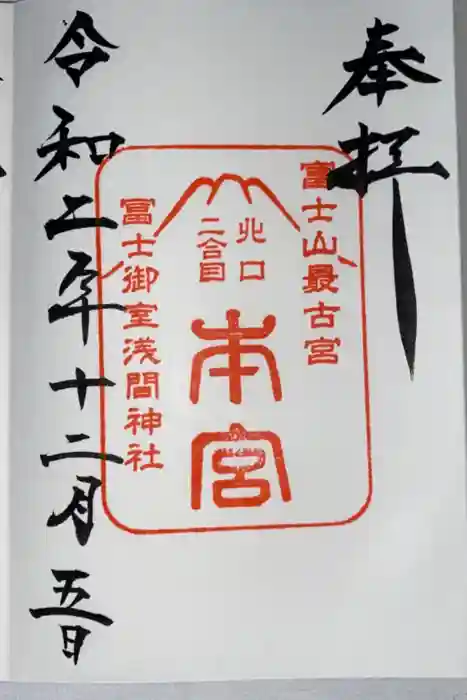 奉拝
富士山最古宮
北口
二合目
本宮
冨士御室浅間神社
令和二年十二月五日